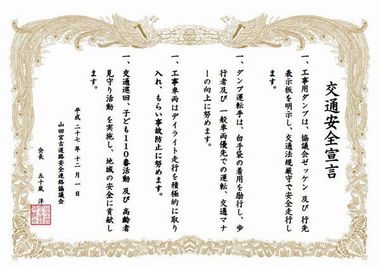 交通安全宣言
一、工事用ダンプは、協議会ゼッケン 及び 行先
表示板を明示し、交通法規厳守で安全走行し
ます。
一、ダンプ運転手は、白手袋の着用を励行し、歩
行者及び 一般車両優先での運転、交通マナ
ーの向上に努めます。
一、工事車両はデイライト走行を積極的に取り
入れ、もらい事故防止に努めます。
一、交通巡回、子ども110番活動 及び 高齢者
見守り活動 を実施し、地域の安全に貢献し
ます。
平成 二十七年 十二月 一日
山田宮古道路安全連絡協議会
会長 五十嵐 洋